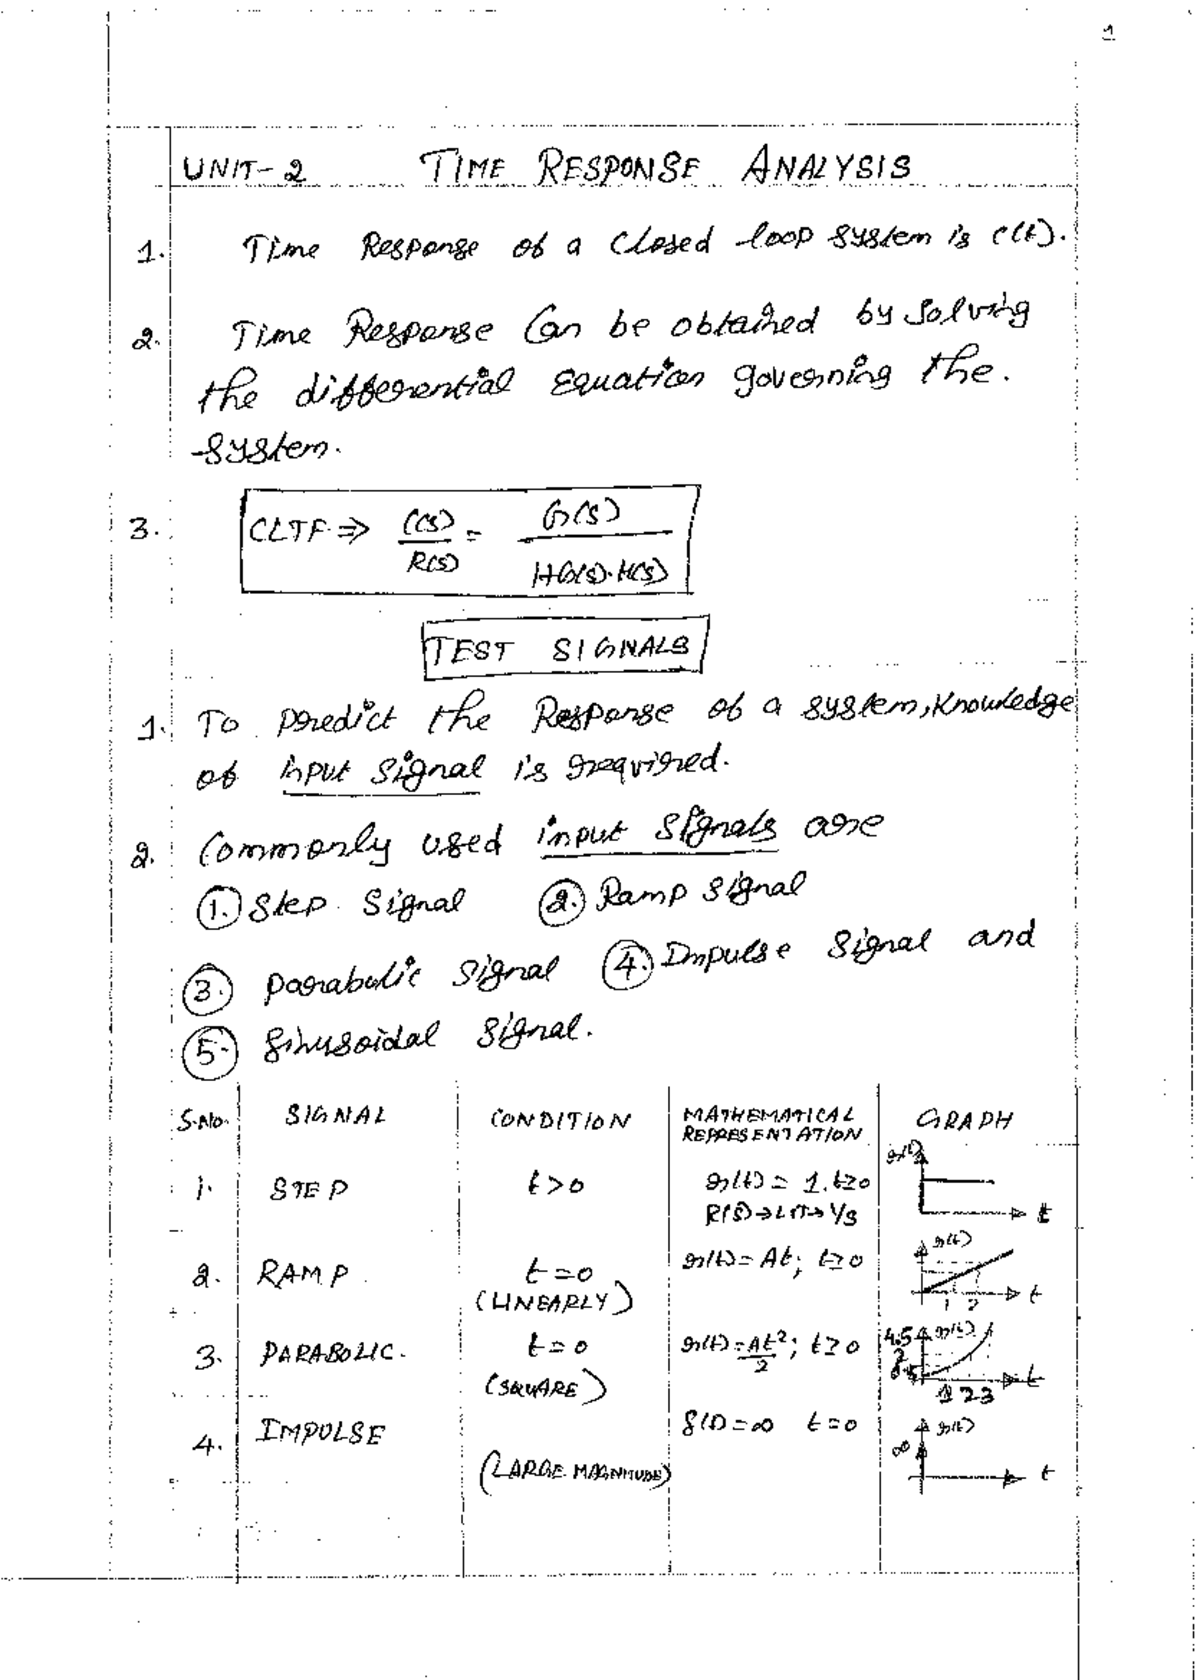 1
UNIT-2 TIME RESPONSE ANALYSIS
1. Time Response of a closed loop system is c(t).
2. Time Response Can be obtained by solving
the differential Equation governing the.
system.
3. CLTF ⇒ C(s)/R(s) = G(s)/1+G(s).H(s)
TEST SIGNALS
1. To predict the Response of a system, Knowledge
of input signal is required.
2. Commonly used input signals are
1. Step Signal 2. Ramp signal
3. parabolic signal 4. Impulse signal and
5. Sinusoidal signal.
S.No. SIGNAL CONDITION MATHEMATICAL REPRESENTATION GRAPH
1. STEP t>0 r(t) = 1. t≥0 r(t)
R(S)→LT→1/s t
2. RAMP t=0 r(t) = At; t≥0 r(t)
(LINEARLY) 1 2 t
3. PARABOLIC. t=0 r(t) = At²/2; t≥0 4.5 r(t)
(SQUARE) 2 .5 1 2 3 t
4. IMPULSE δ(t) = ∞ t=0 r(t)
∞
(LARGE MAGNITUDE) t